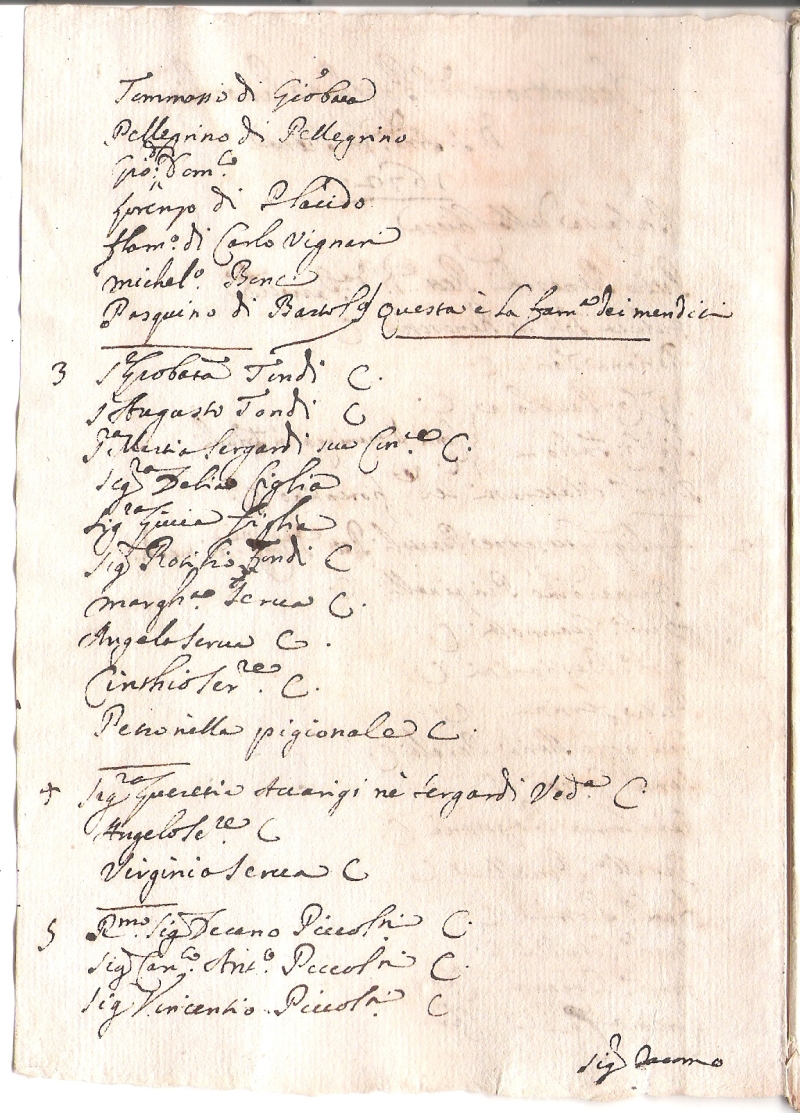 Tommasso di Gio: Batta
Pellegrino di Pellegrino
Gio: Dom.co
Lorenzo di Placido
Flam.o di Carlo Vignar
michel.o Benc
Pasquino di Bartol. Questa è la fam.a dei mendici
3 Sr Giobatta Tondi C.
Sr Augusto Tondi C
Sergardi sua C.
Sig.ra Delia figlia
Sig.ra Livia figlia
Sig.r Rotilio Tondi C
Margh.a Serva C.
Angela Serva C.
Cinthio Ser.re C.
Petronilla pigionale C.
4 Sig.ra Lucretia Accarigi nè Sergardi Ved.a C.
Angelo Se.re C
Virginia Serva C
5 R.mo Sig.r Decano Piccol.ni C.
Sig.r Can.co Ant.o Piccol.ni C.
Sig.r Vincentio Piccol.ni C
Sig.r Iacomo